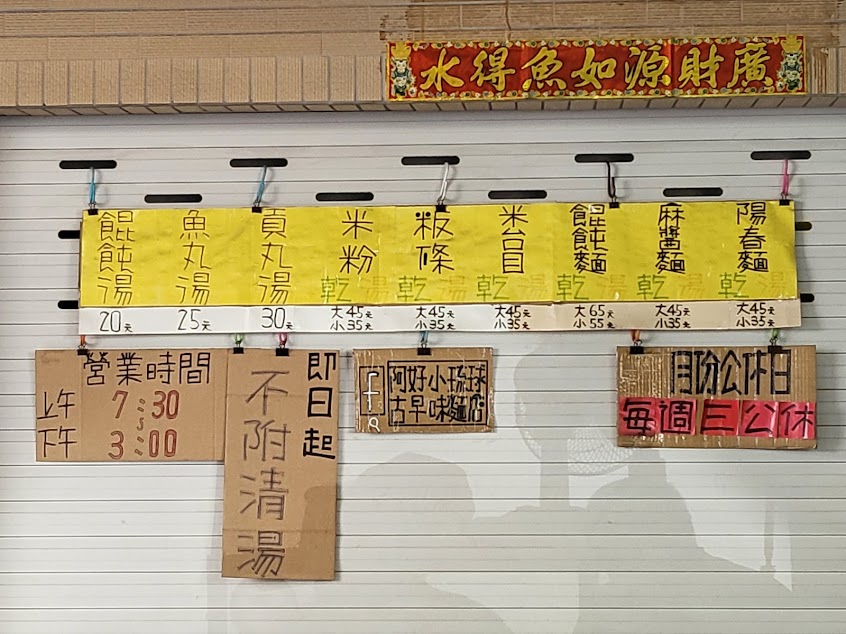 廣財源如魚得水
陽春麵
乾 湯
大45元
小35元
麻醬麵
乾 湯
大45元
小35元
餛飩麵
乾 湯
大65元
小55元
米台目
乾 湯
大45元
小35元
粄條
乾 湯
大45元
小35元
米粉
乾 湯
大45元
小35元
貢丸湯
30元
魚丸湯
25元
餛飩湯
20元
營業時間
上午 7:30
下午 3:00
即日起
不附清湯
阿好小琉球
古早味麵店
月份公休日
每週三公休